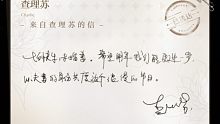 查理苏
Charlie
来自查理苏的信
七夕快乐，未婚妻。希望明年 我们能进一步
以夫妻的身份共度这个浪漫的节日。
查理苏